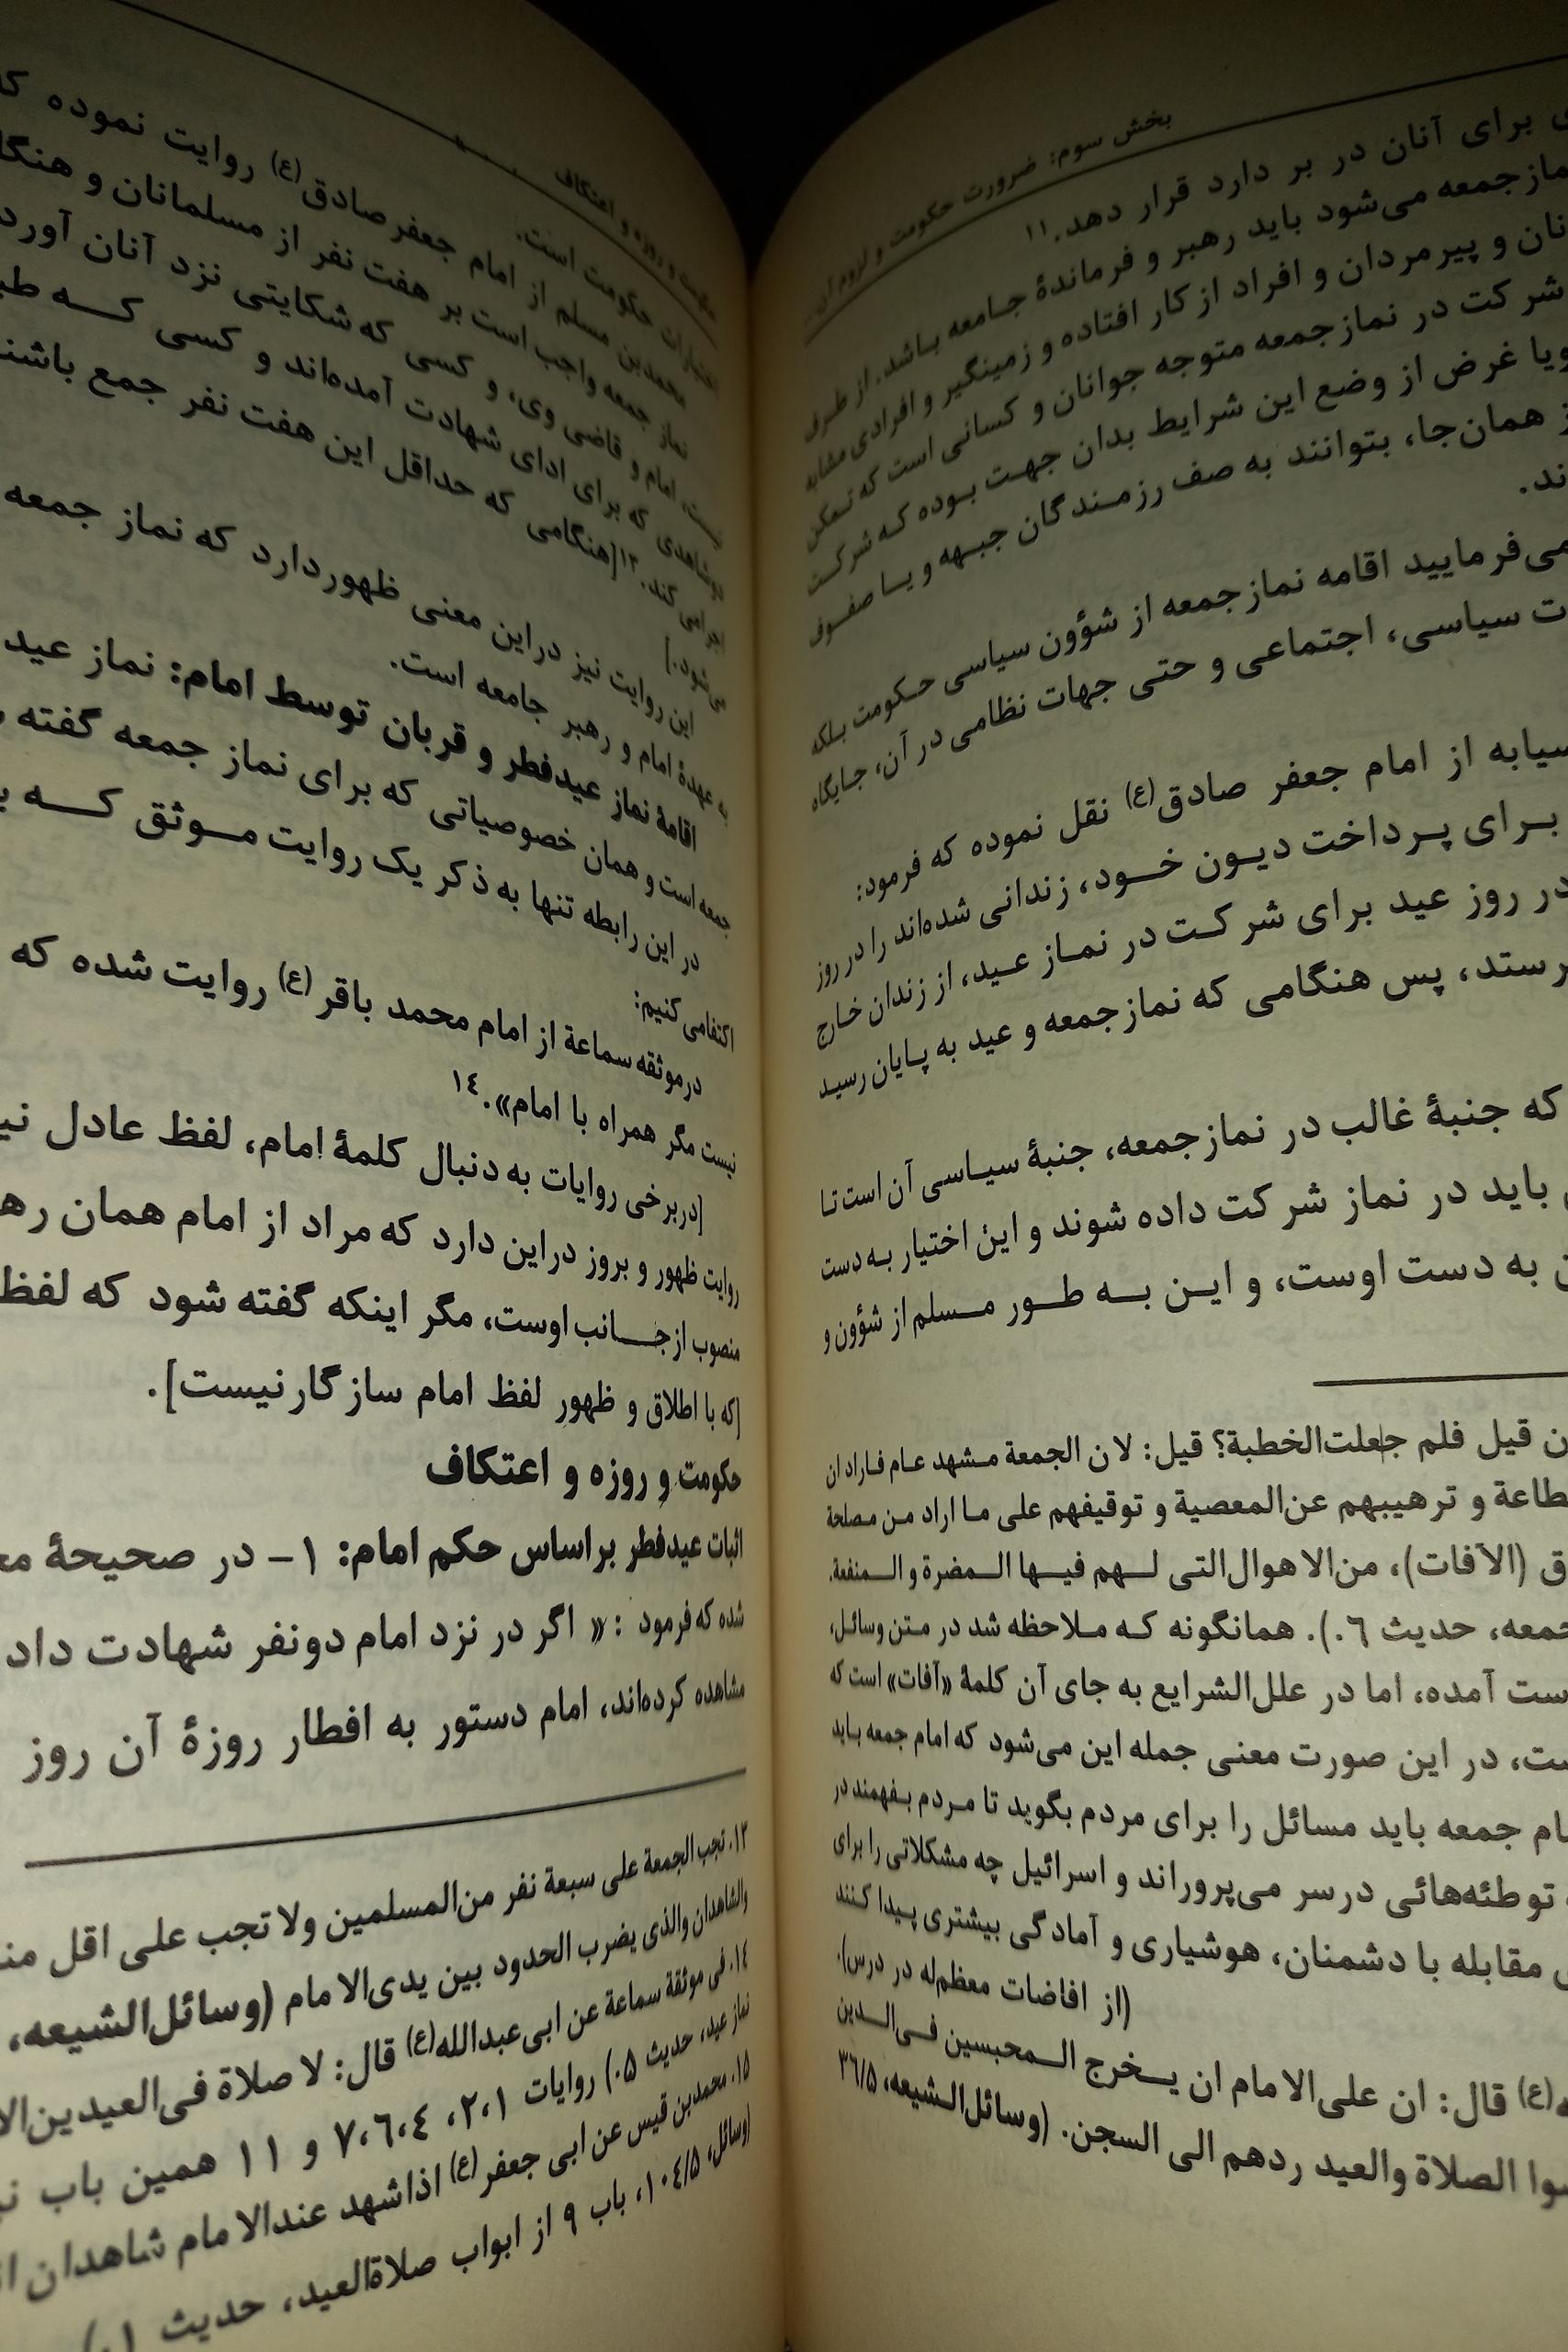 بخش سوم: ضرورت حکومت و لزوم آن
برای آنان در بر دارد قرار دهد.۱۱
مازجمعه می‌شود باید رهبر و فرماندهٔ جامعه باشد. از طرف
نان و پیرمردان و افراد از کار افتاده و زمینگیر و افرادی مشابه
شرکت در نمازجمعه متوجه جوانان و کسانی است که تمکن
ویا غرض از وضع این شرایط بدان جهت بوده که شرکت
همان‌جا، بتوانند به صف رزمندگان جبهه و یا صفوف
ند.
می‌فرمایید اقامه نمازجمعه از شؤون سیاسی حکومت بلکه
ت سیاسی، اجتماعی و حتی جهات نظامی در آن، جایگاه
سیابه از امام جعفر صادق(ع) نقل نموده که فرمود:
برای پرداخت دیون خود، زندانی شده‌اند را در روز
در روز عید برای شرکت در نماز عید، از زندان خارج
رستد، پس هنگامی که نمازجمعه و عید به پایان رسید
که جنبهٔ غالب در نمازجمعه، جنبهٔ سیاسی آن است تا
باید در نماز شرکت داده شوند و این اختیار به دست
به دست اوست، و این به طور مسلم از شؤون و
ن قیل فلم جعلت‌الخطبة؟ قیل: لان الجمعة مشهد عام فاراد ان
طاعة و ترهیبهم عن‌المعصیة و توقیفهم علی ما اراد من مصلحة
ق (الآفات)، من‌الاهوال‌التی لهم فیها المضرة و المنفعة.
جمعه، حدیث ٦.). همانگونه که ملاحظه شد در متن وسائل،
ست آمده، اما در علل‌الشرایع به جای آن کلمهٔ «آفات» است که
ست، در این صورت معنی جمله این می‌شود که امام جمعه باید
ام جمعه باید مسائل را برای مردم بگوید تا مردم بفهمند در
توطئه‌هائی درسر می‌پروراند و اسرائیل چه مشکلاتی را برای
مقابله با دشمنان، هوشیاری و آمادگی بیشتری پیدا کنند
(از افاضات معظم‌له در درس).
(ع) قال: ان علی‌الامام ان یخرج المحبسین فی‌الدین
وا الصلاة والعید ردهم الی السجن. (وسائل‌الشیعه، ۳۶/۵
حکومت و روزه و اعتکاف
اختیارات حکومت است.
محمدبن مسلم از امام جعفرصادق(ع) روایت نموده که
نماز جمعه واجب است بر هفت نفر از مسلمانان و
نیست، امام و قاضی وی، و کسی که شکایتی نزد آنان
دوشاهدی که برای ادای شهادت آمده‌اند و کسی که
اجرا می‌کند.۱۳ [هنگامی که حداقل این هفت نفر جمع
می‌شود.]
این روایت نیز دراین معنی ظهوردارد که نماز جمعه
به عهدهٔ امام و رهبر جامعه است.
اقامهٔ نماز عیدفطر و قربان توسط امام: نماز عید
جمعه است و همان خصوصیاتی که برای نماز جمعه گفته
در این رابطه تنها به ذکر یک روایت موثق که
اکتفا می‌کنیم:
درموثقه سماعة از امام محمد باقر(ع) روایت شده که
نیست مگر همراه با امام».۱٤
[دربرخی روایات به دنبال کلمهٔ امام، لفظ عادل
روایت ظهور و بروز دراین دارد که مراد از امام همان
منصوب ازجانب اوست، مگر اینکه گفته شود که لفظ
[که با اطلاق و ظهور لفظ امام سازگارنیست].
حکومت و روزه و اعتکاف
اثبات عیدفطر براساس حکم امام: ۱- در صحیحهٔ
شده که فرمود: «اگر در نزد امام دونفر شهادت
مشاهده کرده‌اند، امام دستور به افطار روزهٔ آن روز
۱۳. تجب الجمعة علی سبعة نفر من‌المسلمین ولا تجب علی اقل
والشاهدان والذی یضرب الحدود بین یدی‌الامام (وسائل‌الشیعه،
۱٤. فی موثقة سماعة عن ابی‌عبدالله(ع) قال: لا صلاة فی‌العیدین
نماز عید، حدیث ۵.) روایات ۱،۲، ٤،٦،۷ و ۱۱ همین باب
۱۵. محمدبن قیس عن ابی جعفر(ع) اذاشهد عندالامام شاهدان
(وسائل، ۱۰٤/۵، باب ۹ از ابواب صلاةالعید، حدیث ۱.)